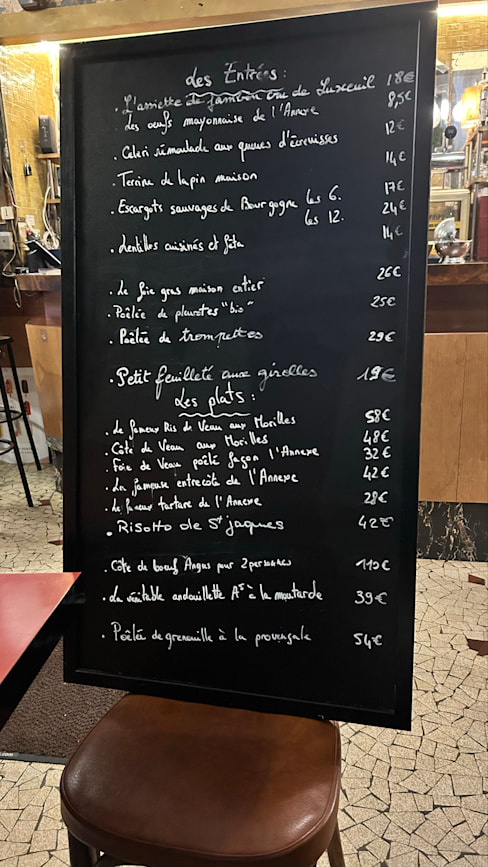 Les Entrées :
. L'assiette de jambon cru de Luxeuil 18€
Les oeufs mayonnaise de l'Annexe 8,5€
. Celeri rémoulade aux queues d'écrevisses 12€
. Terrine de lapin maison 14€
. Escargots sauvages de Bourgogne les 6. 17€
les 12. 24€
. Lentilles cuisinés et féta 14€
. Le foie gras maison entier 26€
. Poêlée de pleurotes "bio" 25€
. Poêlée de trompettes 29€
. Petit feuilleté aux girolles 19€
Les plats :
. Le fameux Ris de Veau aux Morilles 58€
. Côte de Veau aux Morilles 48€
. Foie de Veau poêlé façon l'Annexe 32€
. La fameuse entrecôte de l'Annexe 42€
. Le fameux tartare de l'Annexe 28€
. Risotto de St jaques 42€
. Côte de boeuf Angus pour 2 personnes 110€
. La véritable andouillette A5 à la moutarde 39€
. Poêlée de grenouille à la provençale 54€